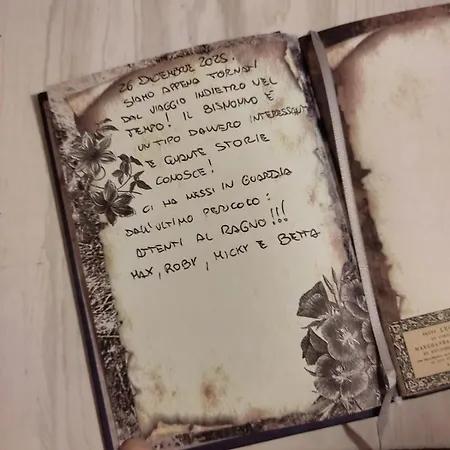 26 DICEMBRE 2025.
SIAMO APPENA TORNATI
DAL VIAGGIO INDIETRO NEL
TEMPO! IL BISNONNO È
UN TIPO DAVVERO INTERESSANTE
E QUANTE STORIE
CONOSCE!
CI HA MESSI IN GUARDIA
DALL'ULTIMO PERICOLO:
ATTENTI AL RAGNO!!!
MAX, ROBY, MICKY E BETTA